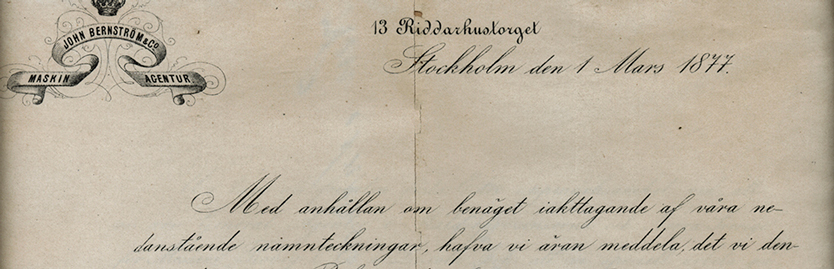 JOHN BERNSTRÖM & Co
MASKIN AGENTUR
13 Riddarhustorget
Stockholm den 1 Mars 1877.
Med anhållan om benäget iakttagande af våra ne-
danstående nämnteckningar, hafva vi äran meddela, det vi den-